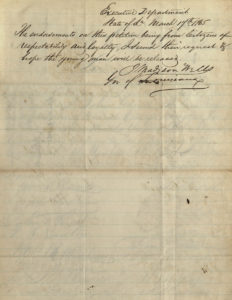 Executive Department
State of La March 19th 1865
The endorsements on this petition being from Citizens of
respectability and loyalty, I second their request &
hope the young man will be released
J Madison Wells
Gov of Louisiana